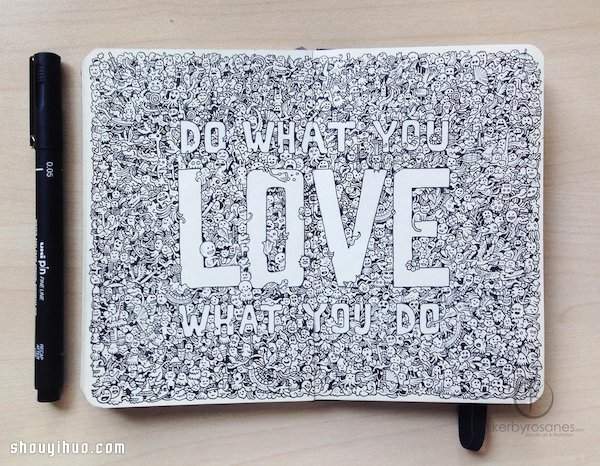 DO WHAT YOU
LOVE
WHAT YOU DO
0.05
uni pin FINE LINE
kerbyrosanes
shouyihuo.com